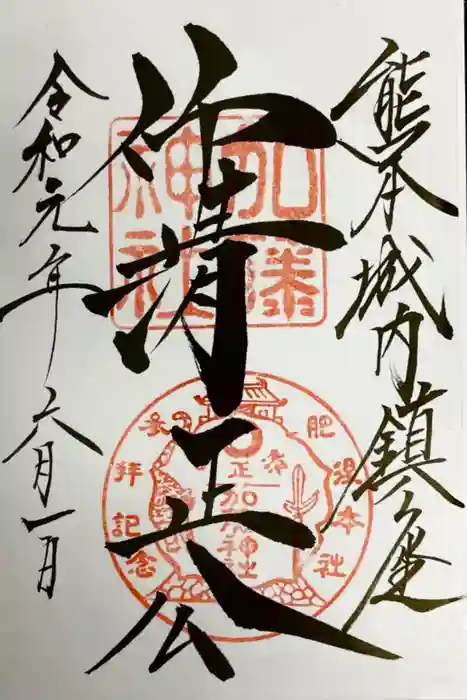 熊本城内鎮座
仰清正公
令和元年六月一日
加藤
神社
参拝記念
加藤神社